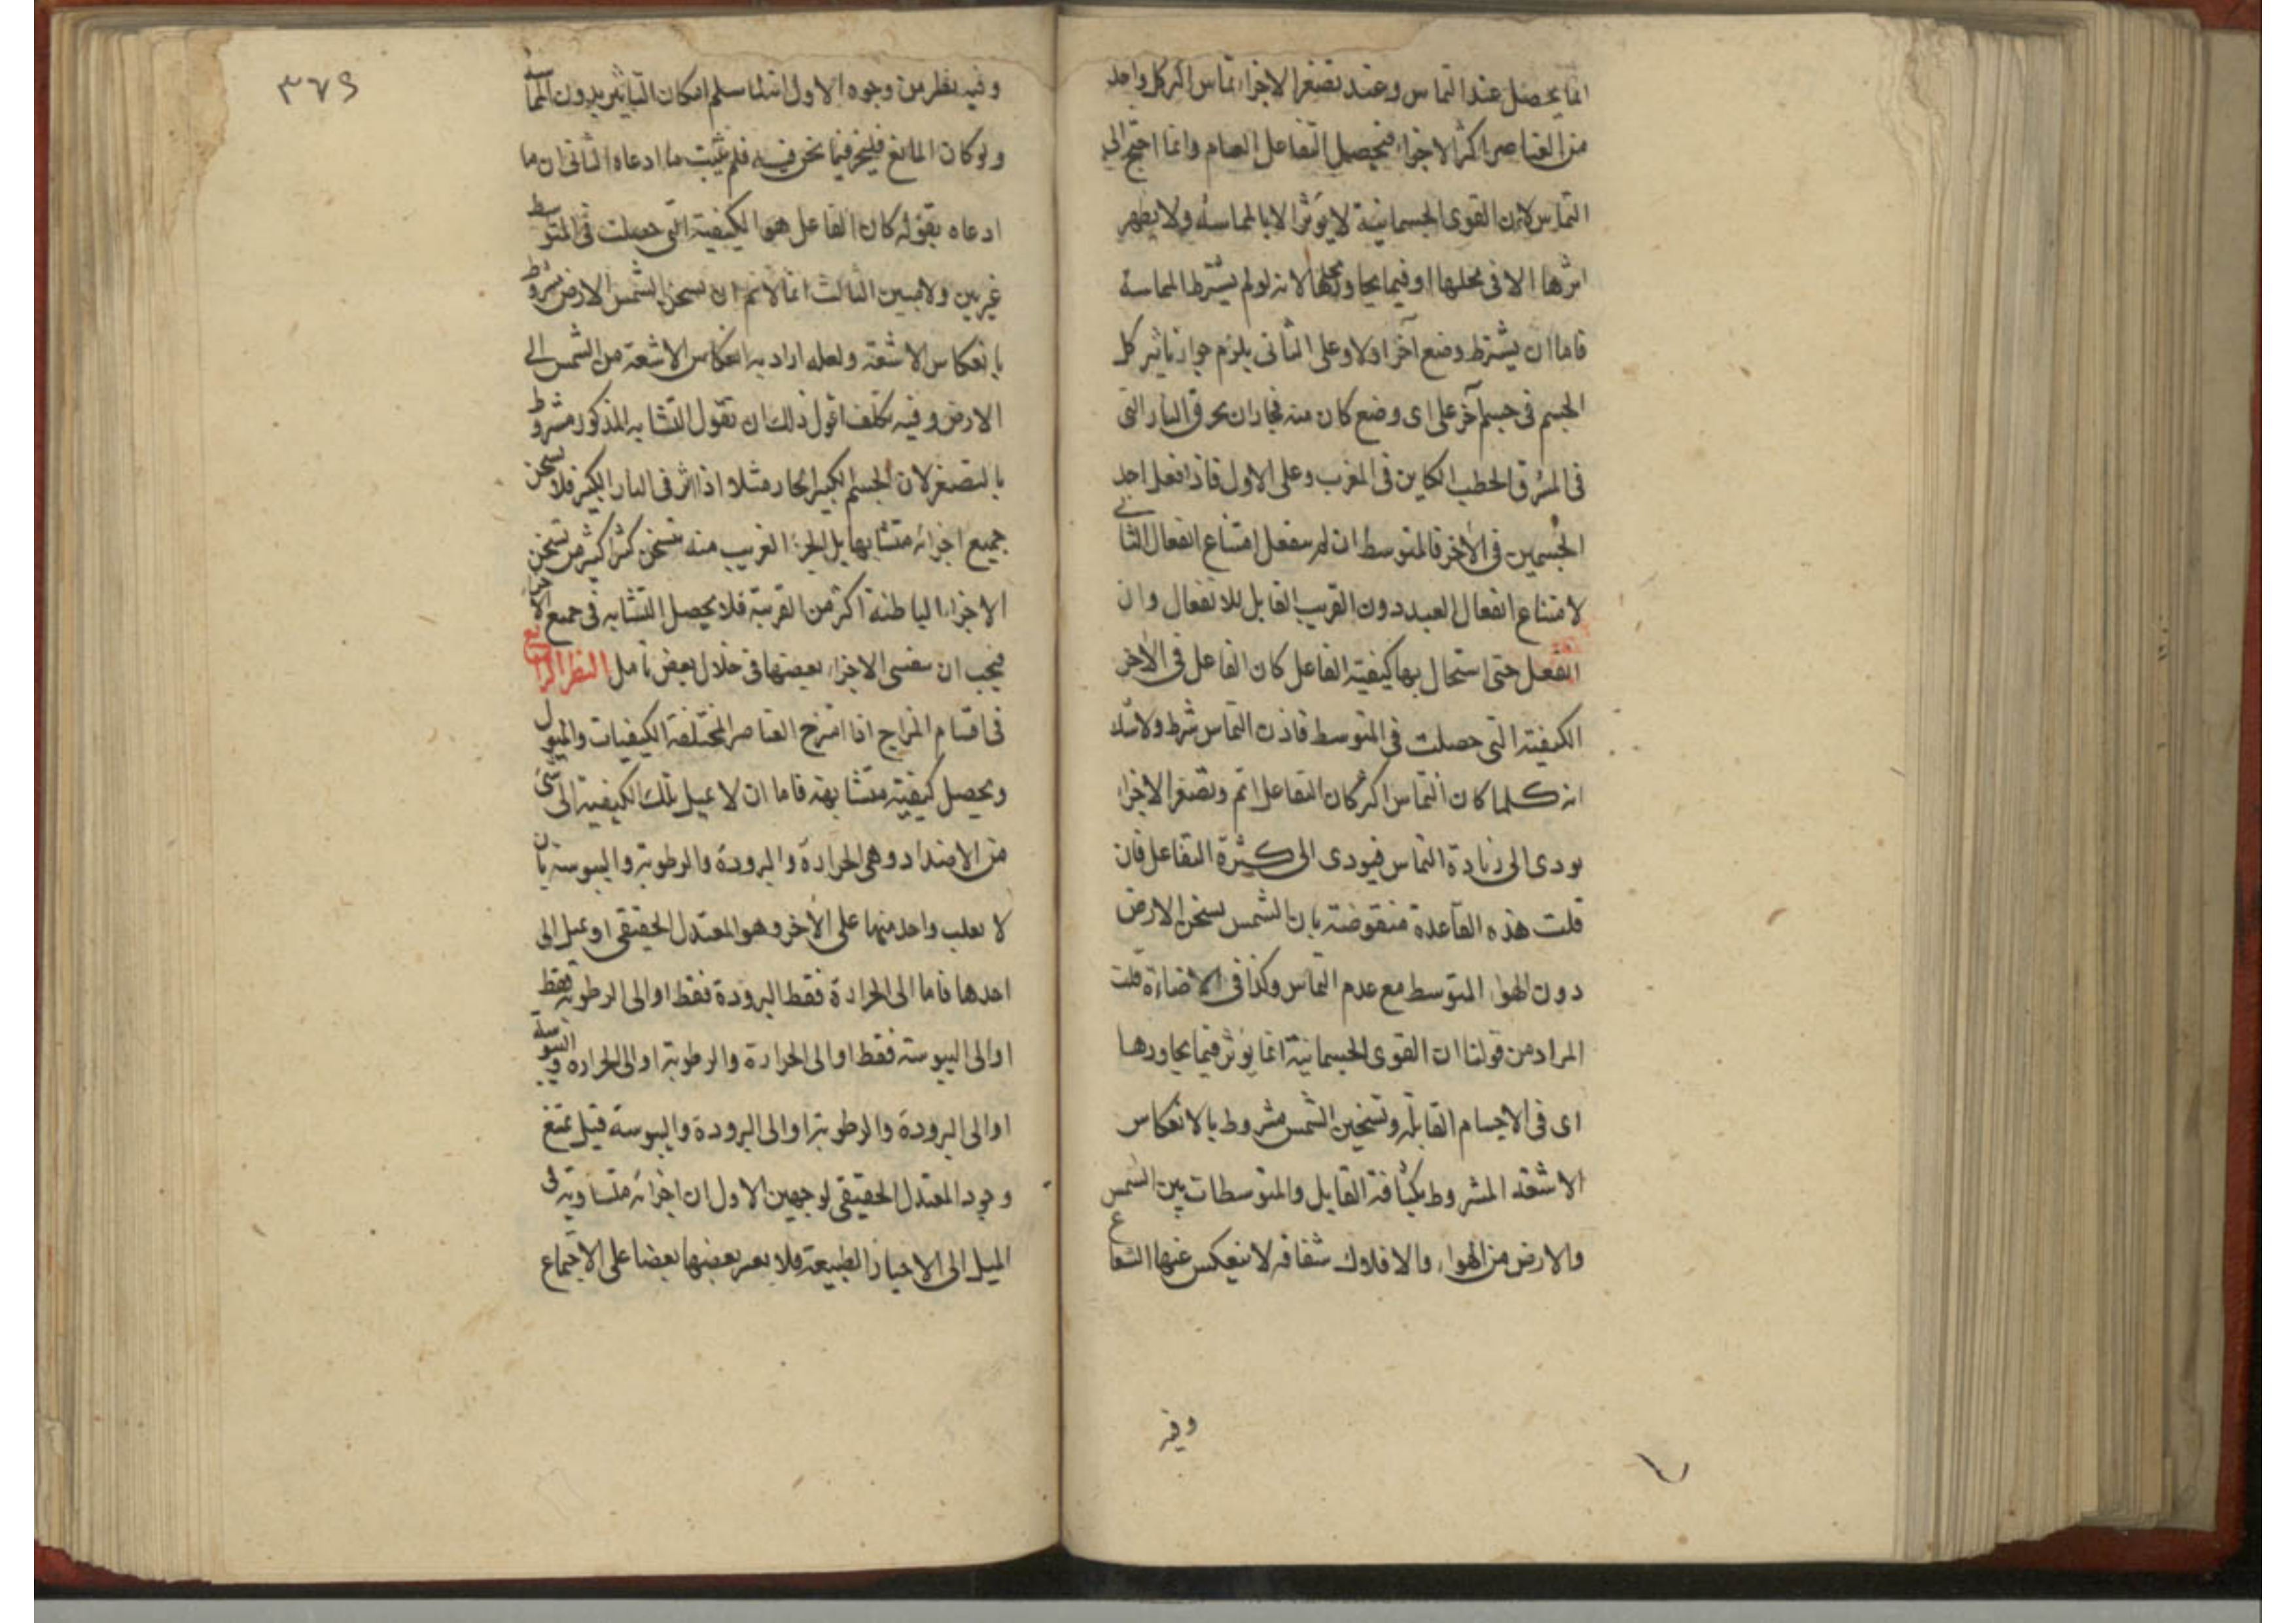 انما يحصل عند التماس وعند تصغر الاجزاء تماس اكثر كل واحد
من العناصر اكثر الاجزاء فيحصل التفاعل العام وانما احتج الى
التماس لان القوى الجسمانية لا يؤثر الا بالمماسة ولا يظهر
اثرها الا فى محلها او فيما يجاور محلها لانه لو لم يشترط المماسة
فاما ان يشترط وضع آخر اولا وعلى الثانى يلزم جواز تاثير كل
الجسم فى جسم آخر على اى وضع كان منه فجاز ان يحرق النار التى
فى المشرق الحطب الكاين فى المغرب وعلى الاول فاذا فعل احد
الجسمين فى الآخر فالمتوسط ان لم ينفعل امتناع انفعال الثانى
لامتناع انفعال البعيد دون القريب القابل للانفعال وان
انفعل حتى استحال بها كيفية الفاعل كان الفاعل فى الآخر
الكيفية التى حصلت فى المتوسط فاذن التماس شرط ولا شك
انه كلما كان التماس اكثر كان التفاعل اتم وتصغر الاجزاء
يودى الى زيادة التماس فيودى الى كثرة التفاعل فان
قلت هذه القاعدة منقوضة بان الشمس يسخن الارض
دون الهواء المتوسط مع عدم التماس وكذا فى الاضاءة قلت
المراد من قولنا ان القوى الجسمانية انما يؤثر فيما يجاورها
اى فى الاجسام القابلة وتسخين الشمس مشروط بالانعكاس
الاشعة المشروط بكثافة القابل والمتوسطات بين الشمس
والارض من الهواء والافلاك شفافة لا ينعكس عنها الشعاع
وفيه
٣٧٩
وفيه نظر من وجوه الاول انه لما سلم امكان التاثير بدون المماسة
ولو كان المانع فليجز فيما نحن فيه فلم يثبت ما ادعاه الثانى ان ما
ادعاه بقوله كان الفاعل هو الكيفية التى حصلت فى المتوسط
غير بين ولا مبين الثالث انا لانم ان تسخن الشمس الارض مشروط
بانعكاس الاشعة ولعله اراد به انعكاس الاشعة من الشمس الى
الارض وفيه تكلف اقول ذلك ان تقول التشابه المذكور مشروط
بالتصغر لان الجسم الكبير الحار مثلا اذا اثر فى البارد الكبير فلا تسخن
جميع اجزائه متشابها بل الجزء القريب منه يتسخن كثر اكثر من تسخن
الاجزاء الباطنة اكثر من القريبة فلا يحصل التشابه فى جميع الاجزاء
فيجب ان الاجزاء بعضها فى خلال بعض تامل النظر الرابع
فى اقسام المزاج اذا امتزج العناصر المختلفة الكيفيات والميول
ويحصل كيفية متشابهة فاما ان لا يميل تلك الكيفية الى شئ
من الاضداد وهى الحرارة والبرودة والرطوبة واليبوسة بان
لا يغلب واحد منها على الآخر وهو المعتدل الحقيقى او يميل الى
احدها فاما الى الحرارة فقط البرودة فقط او الى الرطوبة فقط
او الى اليبوسة فقط او الى الحرارة والرطوبة او الى الحرارة واليبوسة
او الى البرودة والرطوبة او الى البرودة واليبوسة قيل يمتنع
وجود المعتدل الحقيقى لوجهين الاول ان اجزائه متساوية فى
الميل الى الاحياز الطبيعة فلا بعضها بعضا على الاجتماع